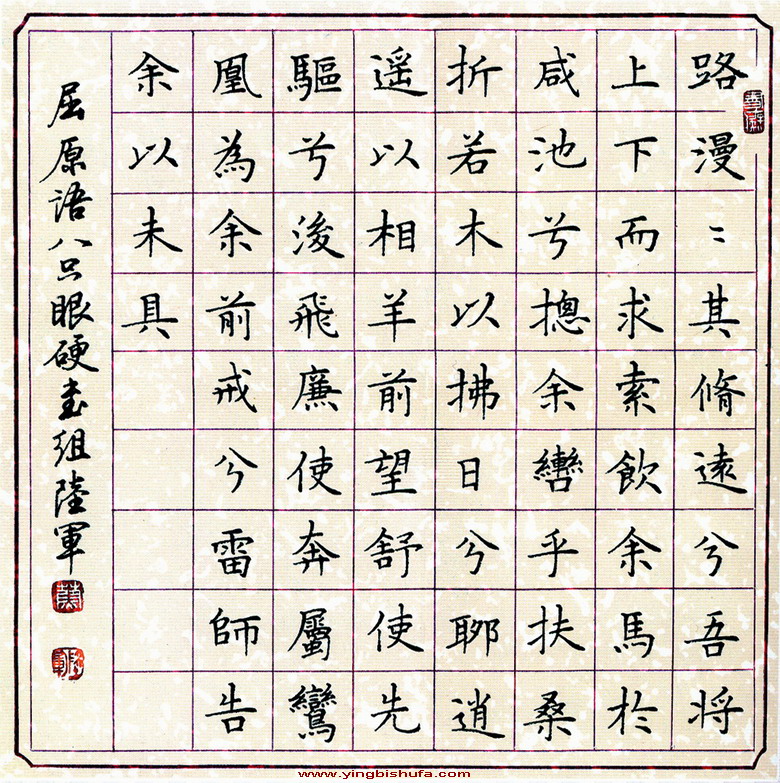 路漫〻其脩遠兮吾将
上下而求索飲余馬於
咸池兮摠余轡乎扶桑
折若木以拂日兮聊逍
遥以相羊前望舒使先
驅兮後飛廉使奔屬鸞
凰為余前戒兮雷師告
余以未具
屈原語八只眼硬書組陸軍
www.yingbishufa.com